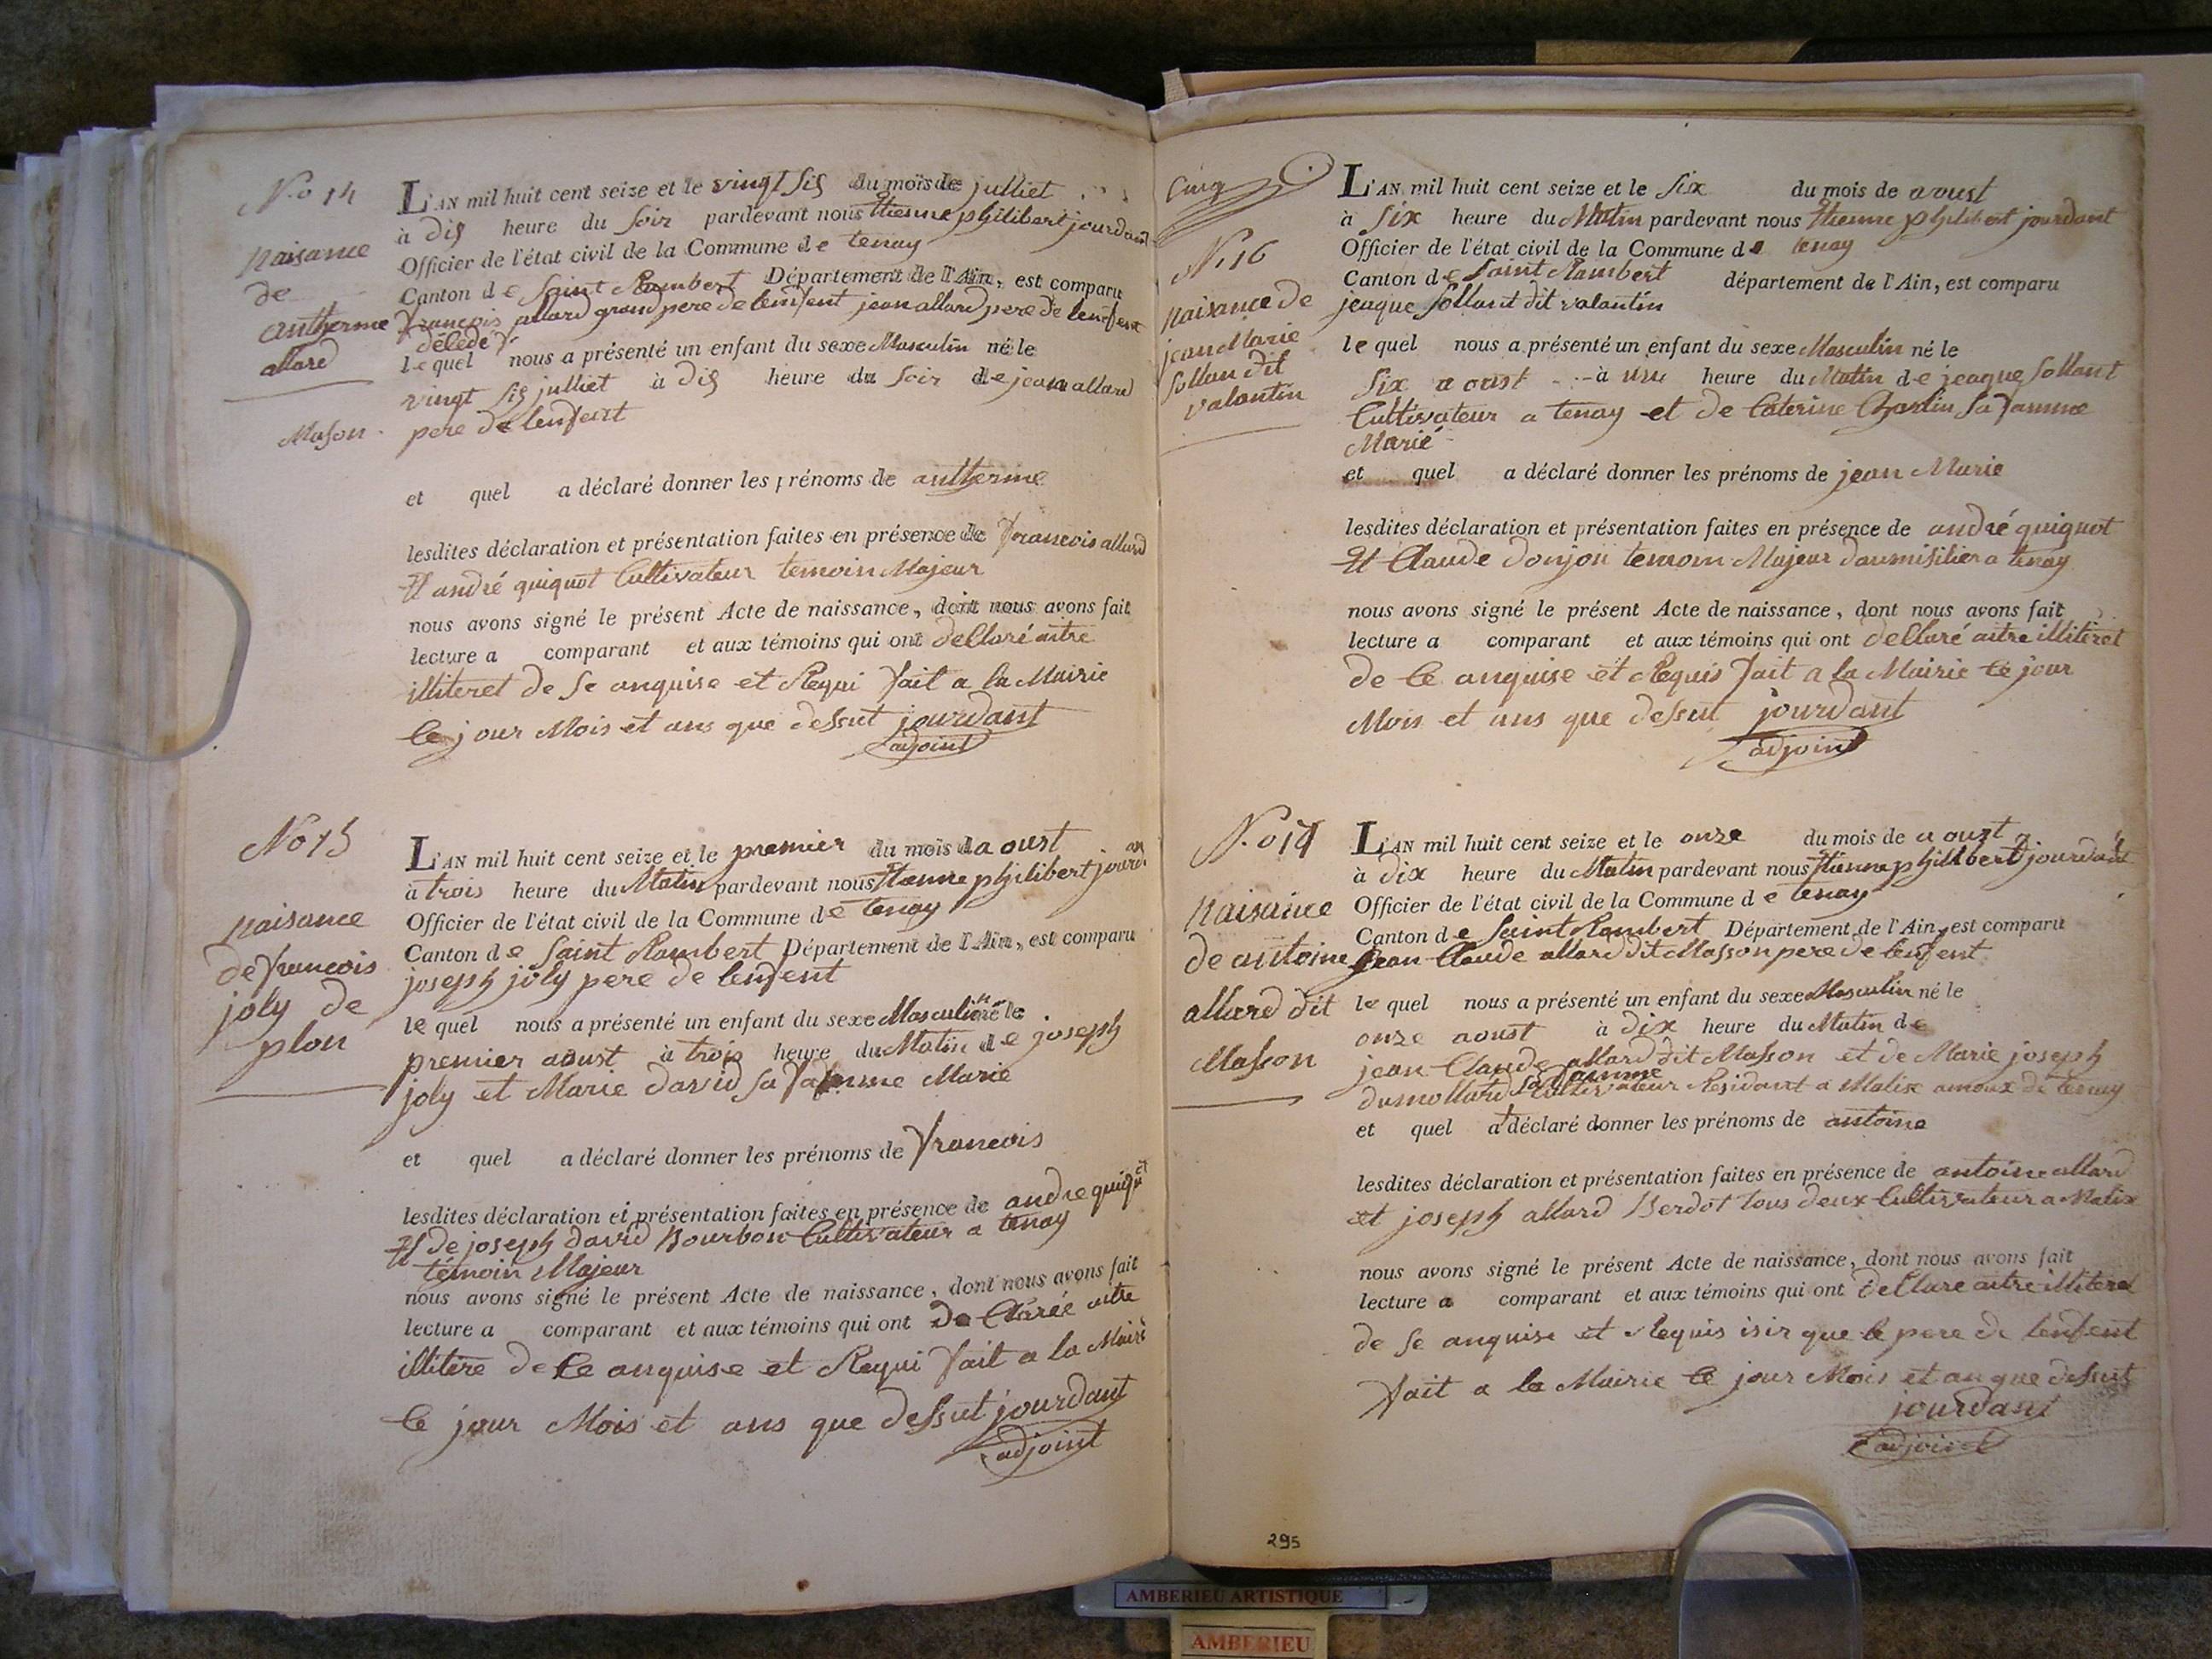 N.o 14
naisance
de
antherme
allard
Mason
L'AN mil huit cent seize et le vingt sis du mois de julliet
à dis heure du soir pardevant nous Etienne philibert jourdant
Officier de l'état civil de la Commune de tenay
Canton de Saint Rambert Département de l'Ain, est comparu
francois allard grand pere de lenfent jean allard pere de lenfent
décédé
lequel nous a présenté un enfant du sexe Masculin né le
vingt sis julliet à dis heure du soir de jean allard
pere de lenfent
et quel a déclaré donner les prénoms de antherme
lesdites déclaration et présentation faites en présence de francois allard
Et andré quiquot Cultivateur temoin Majeur
nous avons signé le présent Acte de naissance, dont nous avons fait
lecture a comparant et aux témoins qui ont dellaré aitre
illiteret de se anquise et Requi fait a la Mairie
le jour Mois et ans que dessut jourdant
adjoint
No 15
naisance
de francois
joly de
plon
L'AN mil huit cent seize et le premier du mois da oust
à trois heure du Matin pardevant nous Etienne philibert jourdan
Officier de l'état civil de la Commune de tenay
Canton de Saint Rambert Département de l'Ain, est comparu
joseph joly pere de lenfent
lequel nous a présenté un enfant du sexe Masculin né le
premier aoust à trois heure du Matin de joseph
joly et Marie david sa famme Marie
et quel a déclaré donner les prénoms de francois
lesdites déclaration et présentation faites en présence de andre quiquet
Et de joseph david Bourbon Cultivateur a tenay
témoin Majeur
nous avons signé le présent Acte de naissance, dont nous avons fait
lecture a comparant et aux témoins qui ont de Clarée aitre
illitere de Ce anquise et Requi fait a la Mairi
le jour Mois et ans que dessut jourdant
adjoint
Cinq
N. 16
naisance de
jean Marie
Sollan dit
valantin
L'AN mil huit cent seize et le six du mois de aoust
à six heure du Matin pardevant nous Etienne philibert jourdant
Officier de l'état civil de la Commune de tenay
Canton de Saint Rambert département de l'Ain, est comparu
jeaque Sollant dit valantin
lequel nous a présenté un enfant du sexe Masculin né le
six aoust à une heure du Matin de jeaque Sollant
Cultivateur a tenay et de Caterine Charlin sa famme
Marié
et quel a déclaré donner les prénoms de jean Marie
lesdites déclaration et présentation faites en présence de andré quiquot
Et Claude donjon temoin Majeur daumisilier a tenay
nous avons signé le présent Acte de naissance, dont nous avons fait
lecture a comparant et aux témoins qui ont dellaré aitre illiteret
de Ce anquise et Requis fait a la Mairie le jour
Mois et ans que dessut jourdant
adjoint
N.o 17
naisance
de antoine
allard dit
Masson
L'AN mil huit cent seize et le onze du mois de aoust
à dix heure du Matin pardevant nous Etienne philibert jourdant
Officier de l'état civil de la Commune de tenay
Canton de Saint Rambert Département de l'Ain, est comparu
jean Claude allard dit Masson pere de lenfent
lequel nous a présenté un enfant du sexe Masculin né le
onze aoust à dix heure du Matin de
jean Claude allard dit Masson et de Marie joseph
sa famme
dumollard Cultivateur Residant a Malix amaux de tenay
et quel a déclaré donner les prénoms de antoine
lesdites déclaration et présentation faites en présence de antoine allard
et joseph allard Berdot tous deux Cultivateur a Malix
nous avons signé le présent Acte de naissance, dont nous avons fait
lecture a comparant et aux témoins qui ont dellare aitre illiteret
de se anquise et Requis isir que le pere de lenfent
fait a la Mairie le jour Mois et an que dessut
jourdant
adjoint
295
AMBERIEU ARTISTIQUE
AMBERIEU